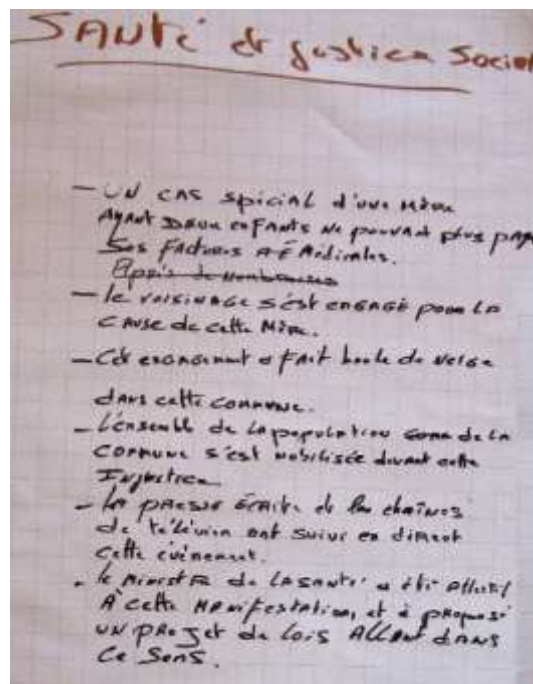 SANTÉ et justice Social
- UN CAS spécial d'une Mère
Ayant Deux enfants Ne pouvant plus paye
Ses Factures Médicales.
Après de nombreuses
- le voisinage s'est engagé pour la
cause de cette Mère.
- Cet engagement a fait boule de neige
dans cette commune.
- L'ensemble de la population de la
commune s'est mobilisée devant cette
Injustice
- La presse écrite et les chaînes
de télévision ont suivi en direct
cette évènement.
- le Ministre de la santé a été
à cette manifestation, et à proposé
UN projet de lois ALLANT dans
ce sens.